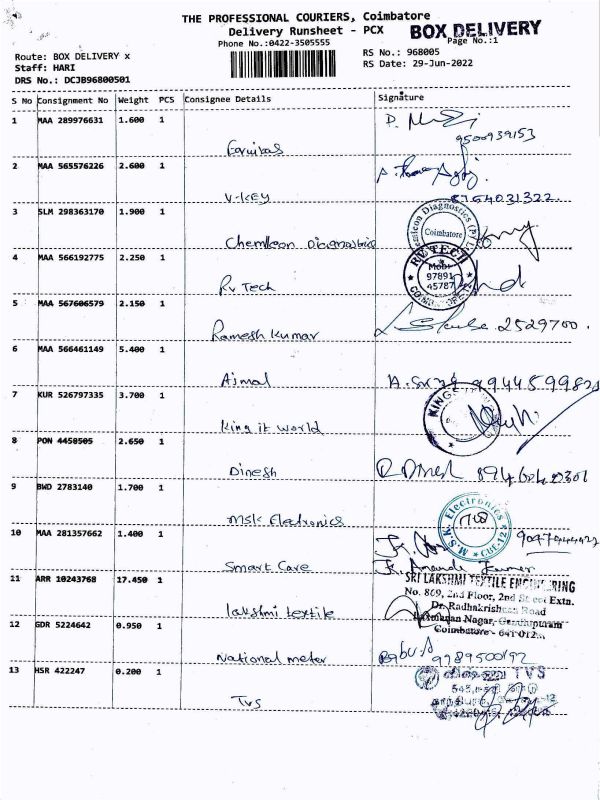 THE PROFESSIONAL COURIERS, Coimbatore
Delivery Runsheet - PCX
BOX DELIVERY
Phone No.:0422-3505555
Page No.:1
Route: BOX DELIVERY x
RS No.: 968005
Staff: HARI
RS Date: 29-Jun-2022
DRS No.: DCJB96800501
S No Consignment No Weight PCS Consignee Details Signature
1 MAA 289976631 1.600 1
9500939153
2 MAA 565576226 2.600 1
V-KEY 8754031322
3 SLM 298363170 1.900 1
Coimbatore
Chemileon Diagnostics
4 MAA 566192775 2.250 1
RV TECH
Mob:
97891
45787
Rv Tech
5 MAA 567606579 2.150 1
Ramesh Kumar 2529700.
6 MAA 566461149 5.400 1
Ajmal
7 KUR 526797335 3.700 1
KING
King it world
8 PON 4458505 2.650 1
Dinesh R Dinesh
9 BWD 2783140 1.700 1
M.S.K. Electronics CBE-12
MSK Electronics
10 MAA 281357662 1.400 1
Smart Care
11 ARR 10243768 17.450 1
SRI LAKSHMI TEXTILE ENGINEERING
No. 869, 2nd Floor, 2nd Street Extn.
Dr. Radhakrishnan Road
Gandhipuram
Coimbatore - 641 012
lakshmi textile
12 GDR 5224642 0.950 1
National meter Babu.A 9789500192
13 HSR 422247 0.200 1
TVS
TVS